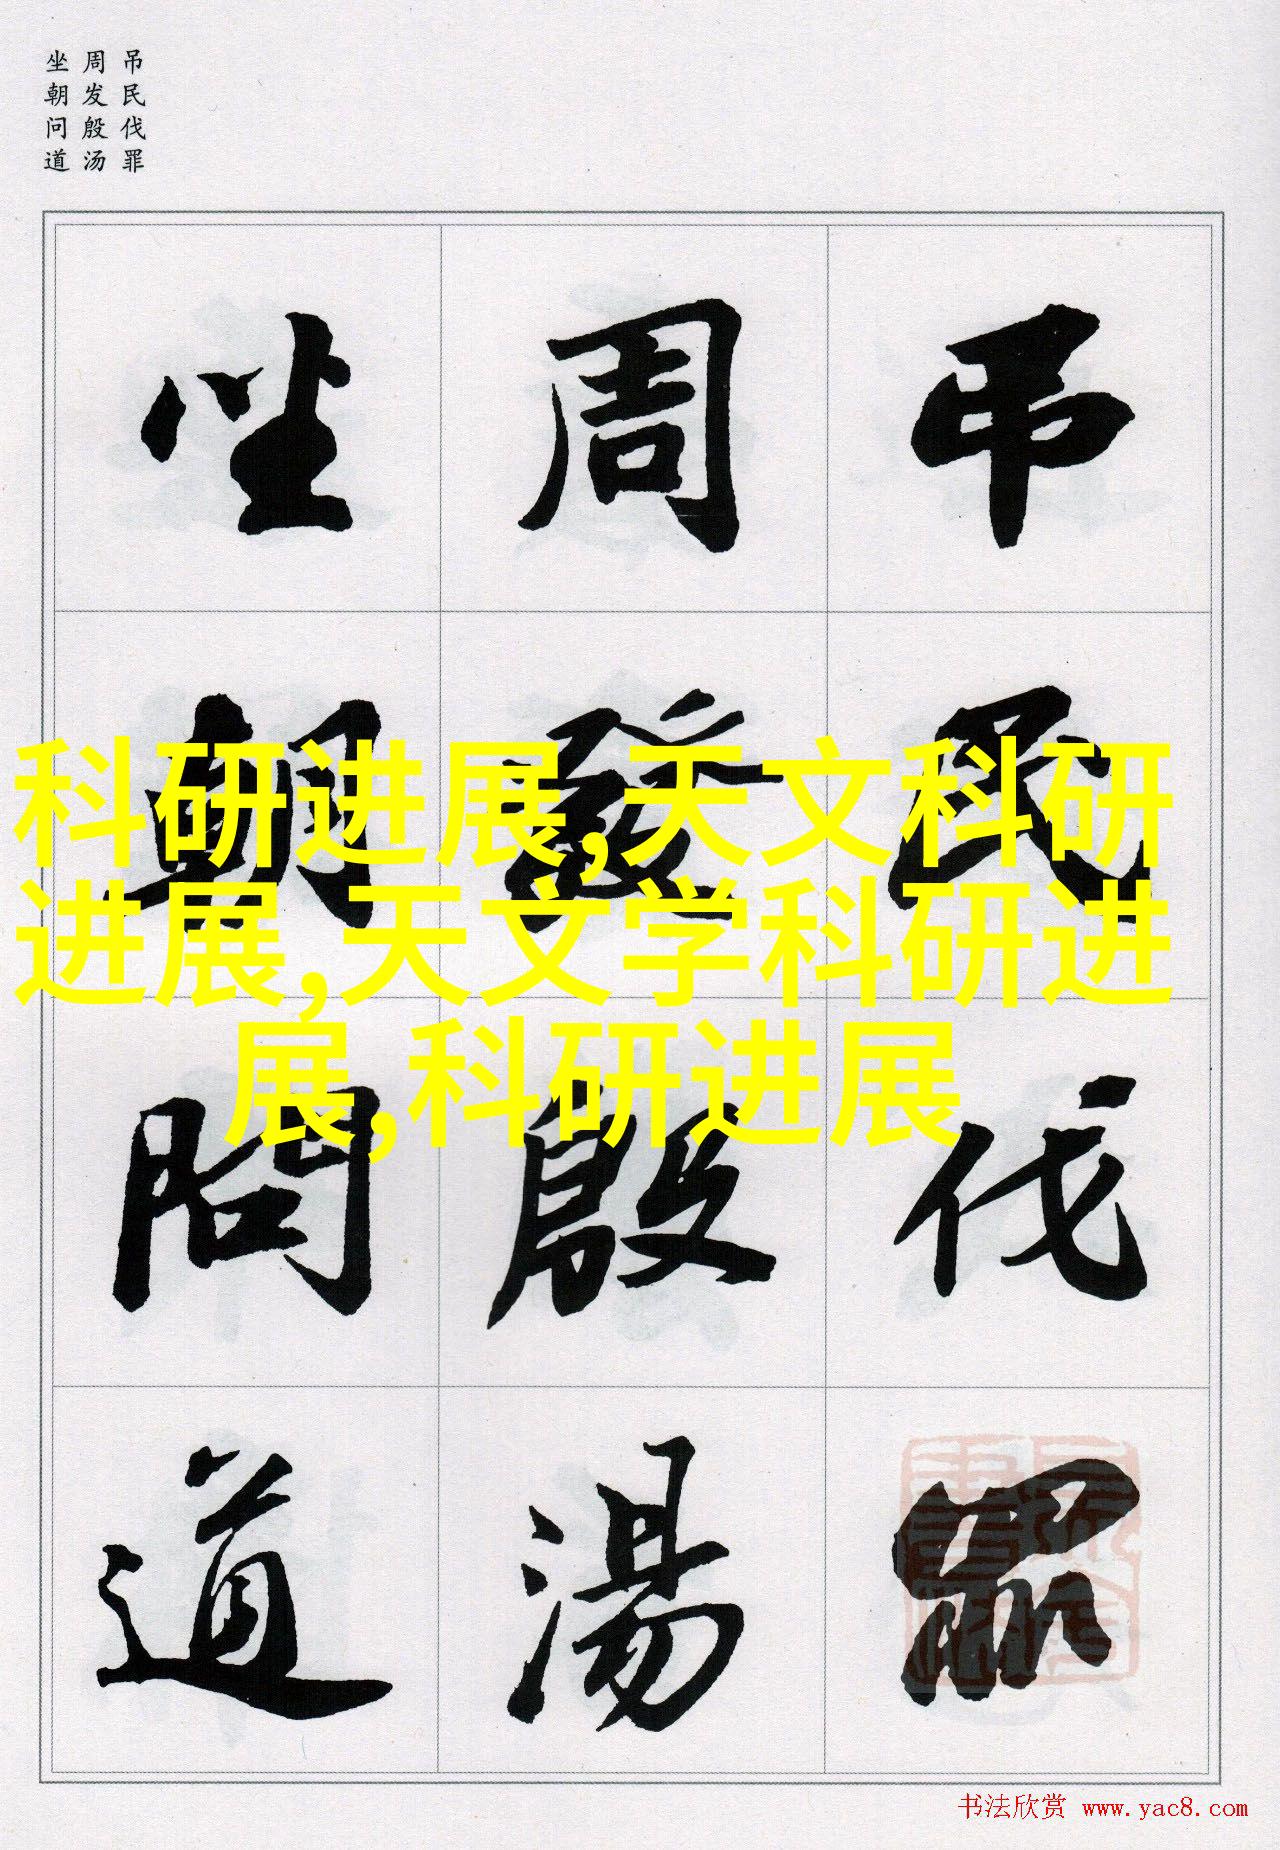 吊民伐罪
周发殷汤
坐朝问道
吊民伐罪
周發殷湯
坐朝問道
科研进展,天文科研
进展,天文学科研进
展,科研进展
书法欣赏 www.yac8.com